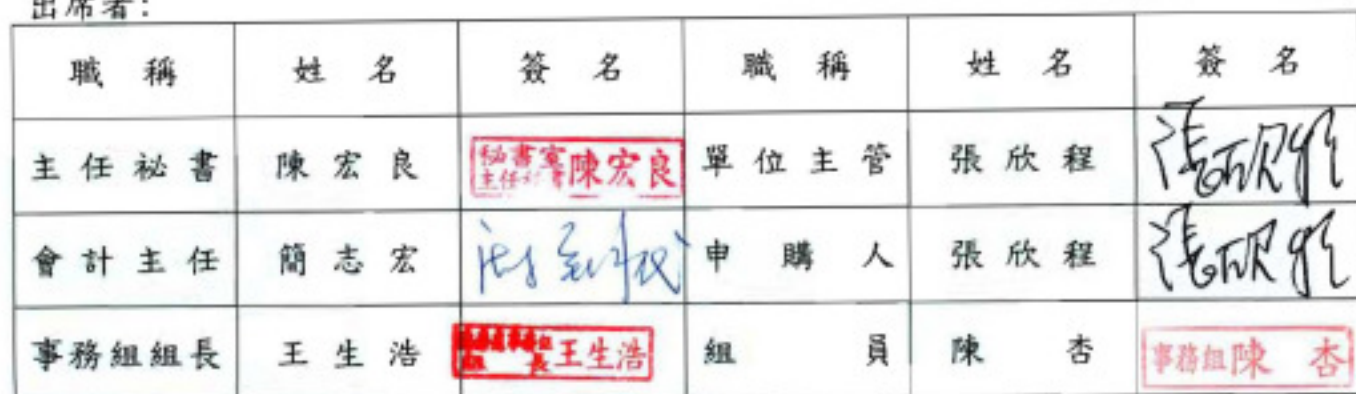 出席者:
職稱 姓名 簽名 職稱 姓名 簽名
主任祕書 陳宏良 秘書室主任祕書陳宏良 單位主管 張欣程
會計主任 簡志宏 申購人 張欣程
事務組組長 王生浩 組長王生浩 組員 陳杏 事務組陳杏